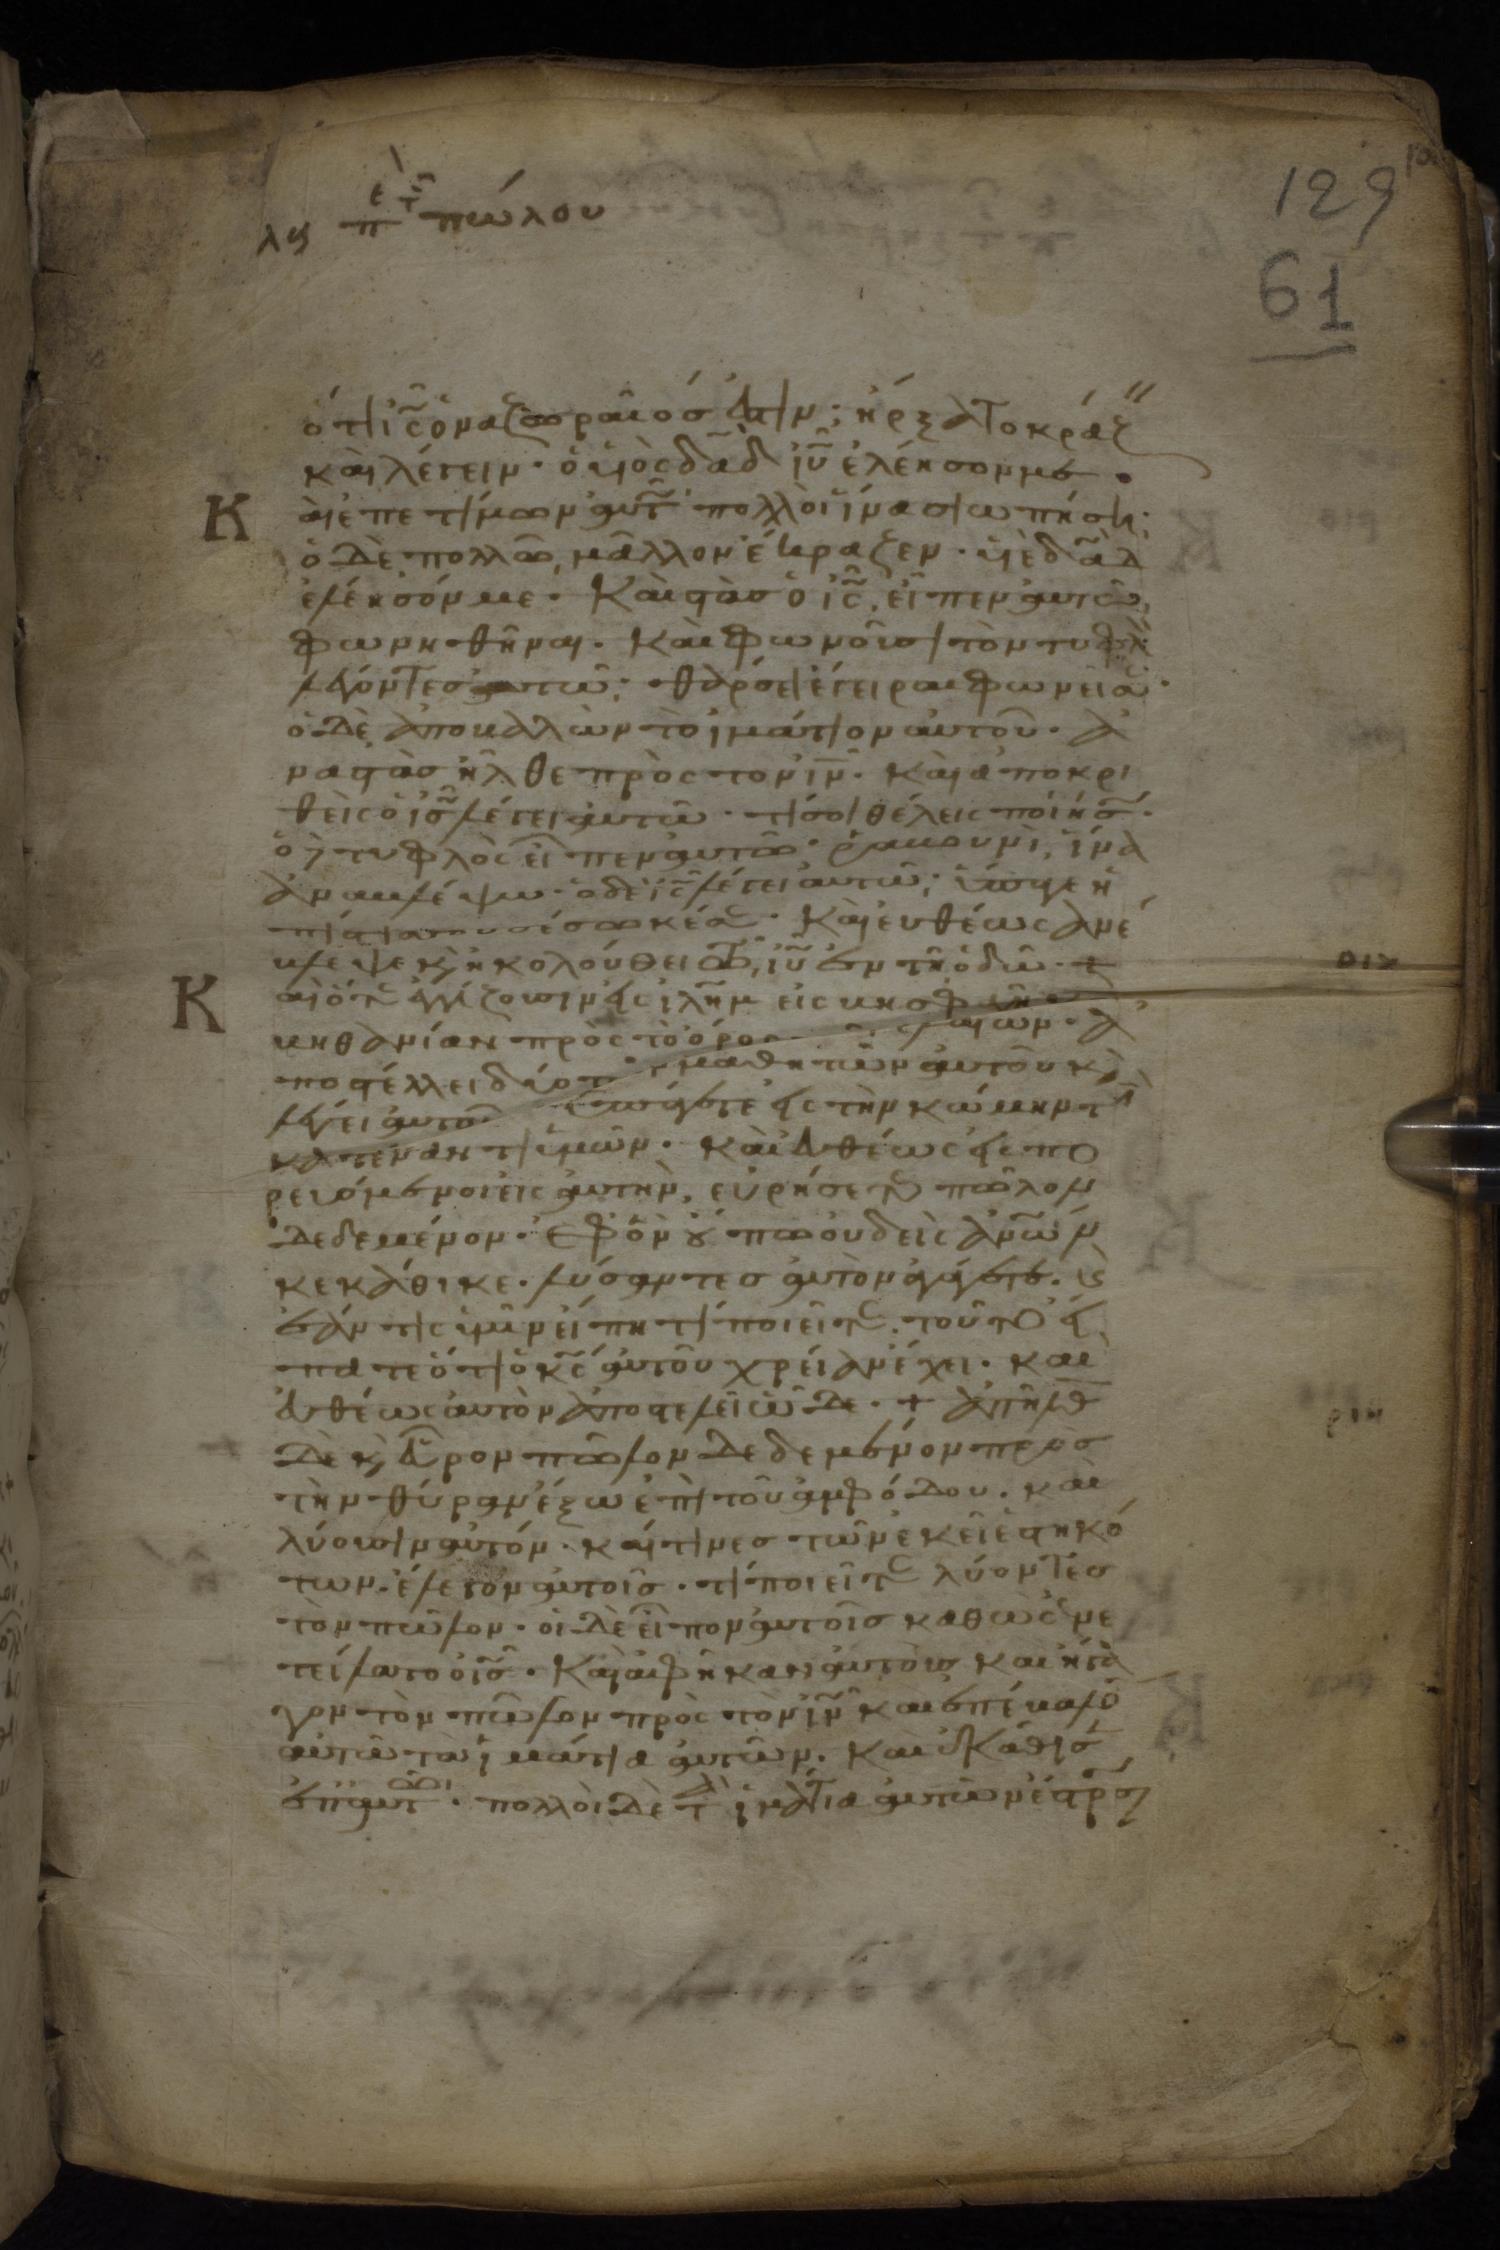 129
61
λϛ περὶ τοῦ πώλου
ὅτι ις̅ ὁ ναζωραῖος ἐστιν· ἤρξατο κράζ
καὶ λέγειν· ὁ υἱὸς δα̅δ ιυ̅ ἐλέησόν με·
Κ αὶ ἐπετίμων αὐτῶ πολλοὶ ἵνα σιωπήση·
ὁ δὲ πολλῶ μᾶλλον ἔκραζεν· υἱὲ δα̅δ
ἐλέησόν με· Καὶ στὰς ὁ ις̅ εἶπεν αὐτὸν
φωνηθῆναι· Καὶ φωνοῦσι τὸν τυφλὸν
λέγοντες αὐτῶ· θάρσει ἔγειραι φωνεῖ σε·
ὁ δὲ ἀποβαλὼν τὸ ἱμάτιον αὐτοῦ· ἀ
ναστὰς ἦλθε πρὸς τὸν ιν̅· Καὶ ἀποκρι
θεὶς ὁ ις̅ λέγει αὐτῶ· τί σοι θέλεις ποιήσω·
ὁ τυφλὸς εἶπεν αὐτῶ· ῥαβουνὶ, ἵνα
ἀναβλέψω· ὁ δὲ ις̅ λέγει αὐτῶ· ὕπαγε ἡ
πίστις σου σέσωκέ σε· Καὶ εὐθέως ἀνέ
βλεψε κ ἠκολούθει τῶ ιυ̅ ἐν τῆ ὁδῶ· +
Κ αὶ ὅτε ἐγγίζουσιν εἰς ιλη̅μ εἰς βησφαγῆ
βηθανίαν πρὸς τὸ ὄρος ἐλαιῶν· ἀ
ποστέλλει δύο μαθητῶν αὐτοῦ κ
λέγει αὐτοῖς ὑπάγετε εἰς τὴν κώμην τὴν
κατέναντι ὑμῶν· καὶ εὐθέως εἰσπο
ρευόμενοι εἰς αὐτὴν, εὑρήσετε πῶλον
δεδεμένον· ἐφ ὃν οὔπω οὐδεὶς ἀνων̅
κεκάθικε· λύσαντες αὐτὸν ἀγάγετε· κ
ἐάν τις ὑμῖν εἴπη τί ποιεῖτε τοῦτο εἴ
πατε ὅτι ὁ κς̅ αὐτοῦ χρείαν ἔχει· καὶ
εὐθέως αὐτὸν ἀποστελεῖ ὧδε· + ἀπῆλθον
δὲ κ εὗρον πῶλον δεδεμένον πρὸς
τὴν θύραν ἔξω ἐπὶ τοῦ ἀμφόδου· καὶ
λύουσιν αὐτόν· καί τινες τῶν ἐκεῖ ἑστηκό
των· ἔλεγον αὐτοῖς· τί ποιεῖτε λύοντες
τὸν πῶλον· οἱ δὲ εἶπον αὐτοῖς καθὼς ἐνε
τείλατο ὁ ις̅· Καὶ ἀφῆκαν αὐτοὺς καὶ ἤγα
γον τὸν πῶλον πρὸς τὸν ιν̅ καὶ ἐπέβαλον
αὐτῶ τὰ ἱμάτια αὐτῶν· καὶ ἐκάθισεν
ἐπ αὐτῶ· πολλοὶ δὲ τὰ ἱμάτια αὐτῶν ἔστρωσαν